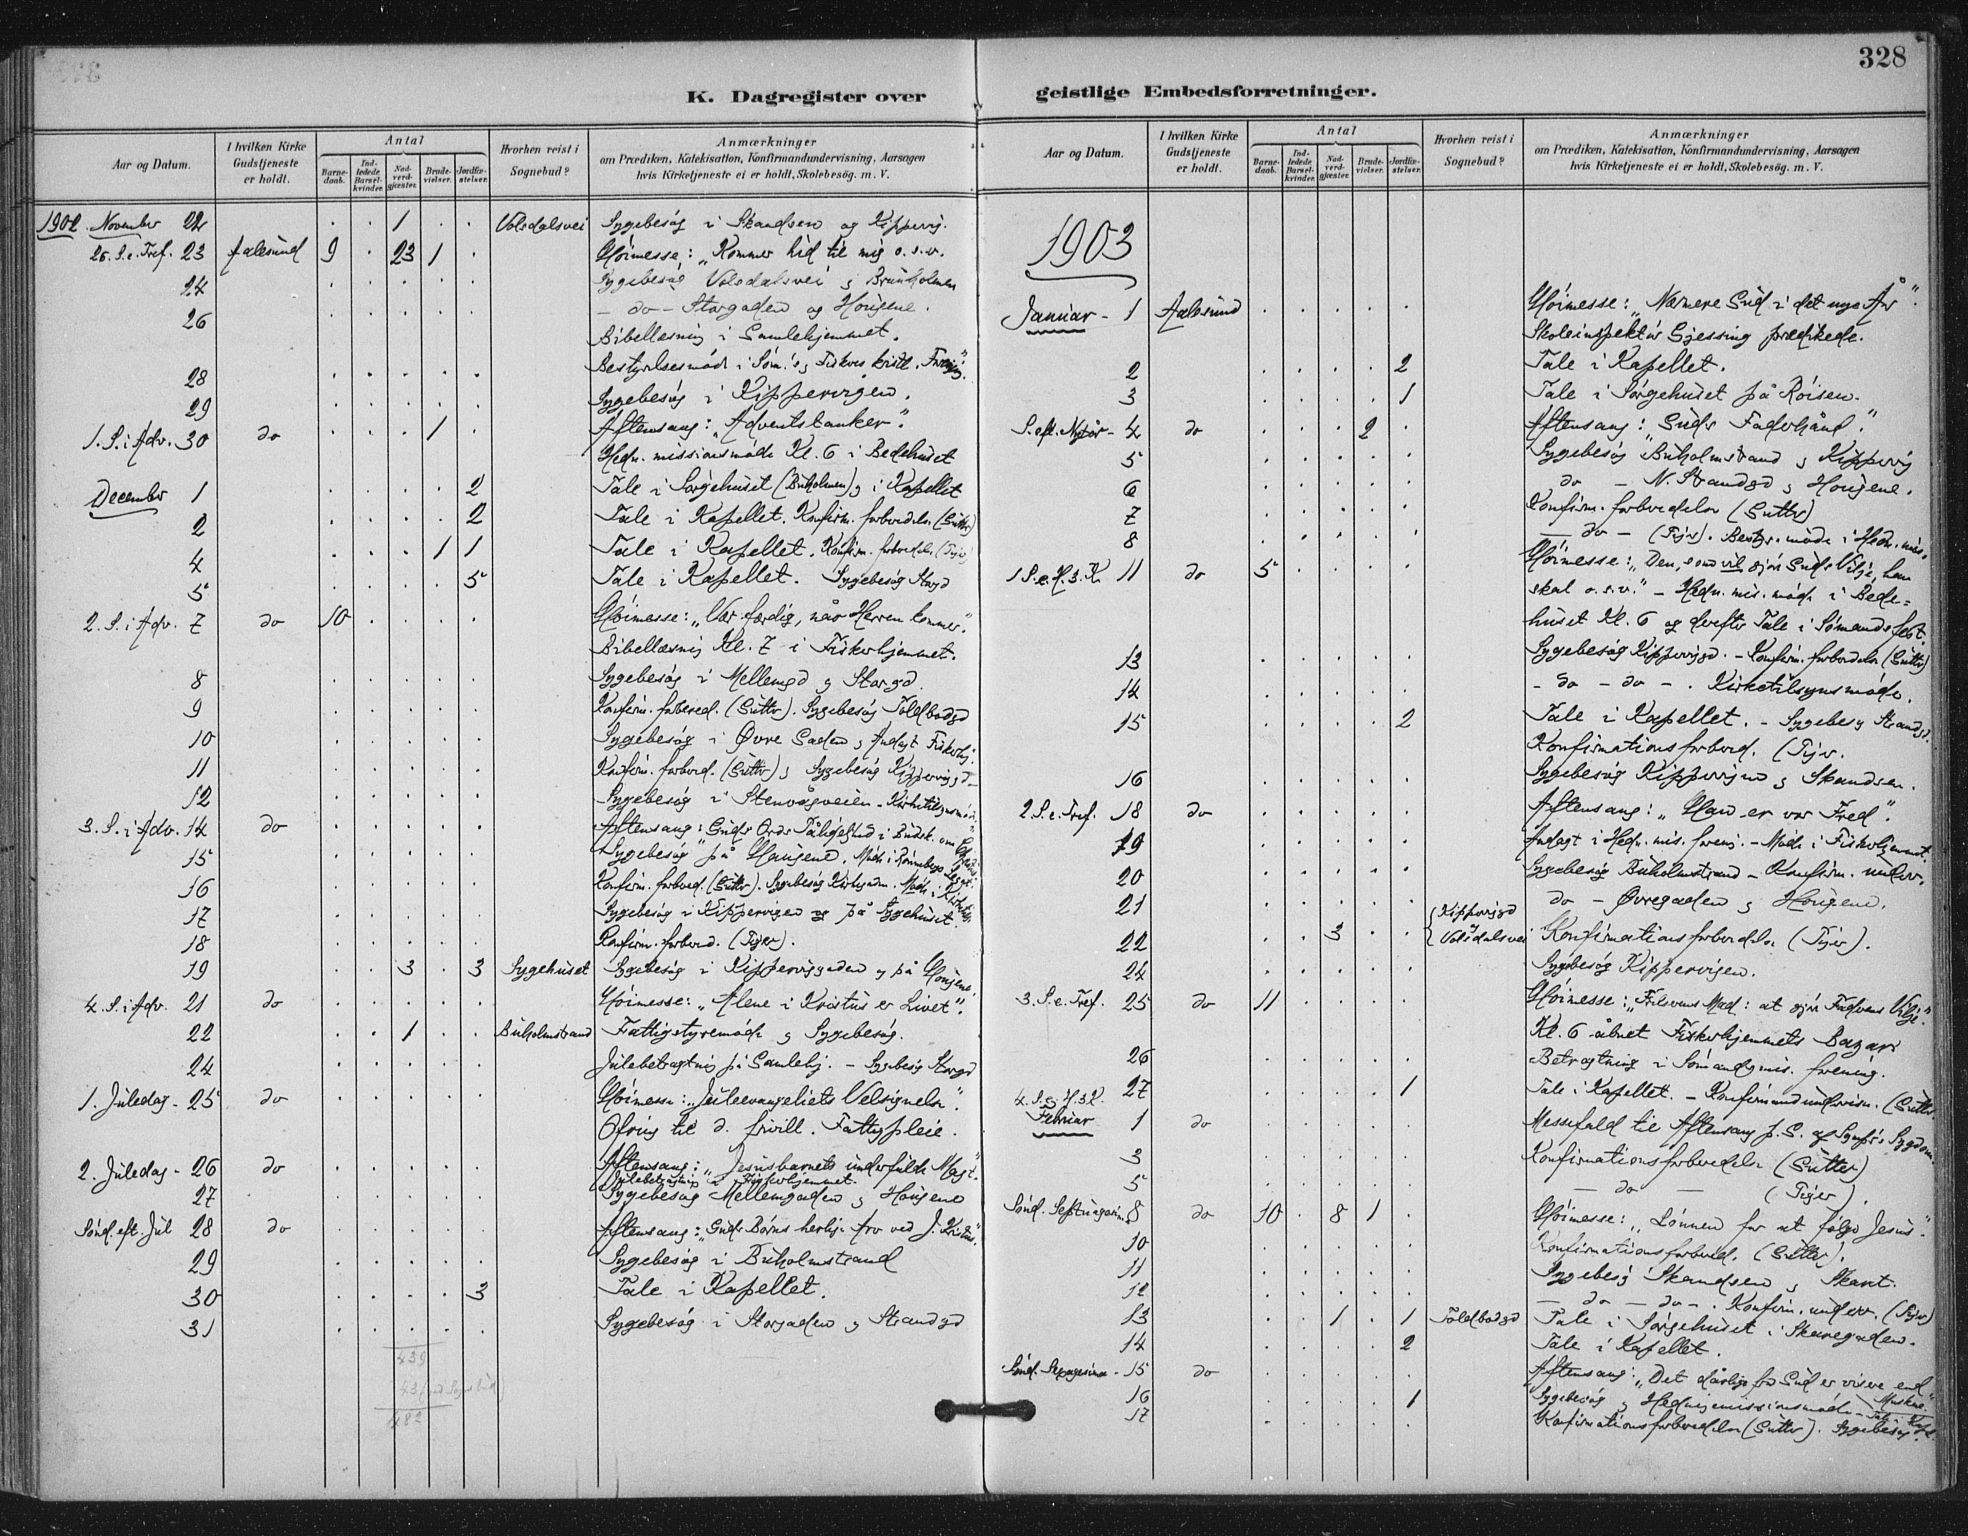 328
K. Dagregister over geistlige Embedsforretninger.
Aar og Datum.
I hvilken Kirke Gudstjeneste er holdt.
Antal
Barne-daab.
Ind-ledede Barsel-kvinder.
Nad-verd-gjæster.
Brude-vielser.
Jordfæ-stelser.
Hvorhen reist i Sognebud?
Anmærkninger
om Prædiken, Katekisation, Konfirmandundervisning, Aarsagen
hvis Kirketjeneste ei er holdt, Skolebesög. m. V.
1902. November 22 . . 1 . . Volsdalsvei Sygebesög i Skandsen og Kippervig.
26. S. e. Tref. 23 Aalesund 9 . 23 1 . Höimesse: „Kommer hid til mig o.s.v.
24 . . . . . Sygebesög Volsdalsvei og Brunholmen
26 . . . . . - do - Storgaden og Hougene.
Bibellæsning i Samlehjemmet.
Bestyrelsesmöde i Söm.'s og Fiskeres kristl. Forening.
28 . . . . . Sygebesög i Kippervigen.
29 . . . . .
1. S. i Adv. 30 do . . . 1 . Aftensang: „Adventstanker".
Hedn. missionsmöde Kl. 6 i Bedehuset
December 1 . . . . 2 Tale i Sörgehuset (Buholmen) og i Kapellet
2 . . . . 2 Tale i Kapellet. Konfirm. forberedelse (Gutter)
4 . . . 1 1 Tale i Kapellet. Konfirm. forbered. (Piger)
5 . . . . 5 Tale i Kapellet. Sygebesög Storgd
2. S. i Adv. 7 do 10 . . . . Höimesse: „Vær færdig, når Herren kommer".
Bibellæsning Kl. 7 i Fiskerhjemmet.
8 . . . . . Sygebesög i Mellemgd og Storgd
9 . . . . . Konfirm. forbered. (Gutter). Sygebesög Toldbodgd
10 . . . . . Sygebesög i Øvre Gaden og Andagt Fiskerhj.
11 . . . . . Konfirm. forbered. (Gutter) og Sygebesög Kipperviggd
12 . . . . . Sygebesög i Stenvågveien - Kirketilsynsmöde
3. S. i Adv. 14 do . . . . . Aftensang: Guds Ords
15 . . . . . Sygebesög på Hougene. Möde i Rönnebergs Legat
16 . . . . . Konfirm. forbered. (Gutter). Sygebesög Kirkegaden. Möde i
17 . . . . . Sygebesög i Kippervigen og på Sygehuset.
18 . . . . . Konfirm. forbered. (Piger).
19 . . 3 . 3 Sygehuset Sygebesög i Kippervigaden og på Hougene.
4. S. i Adv. 21 do . . . . . Höimesse: „Alene i Kristus er Livet".
22 . . 1 . . Buholmstrand Fattigstyremöde og Sygebesög.
24 . . . . . Julebetragtning på Samlehj. - Sygebesög Storgd
1. Juledag - 25 do . . . . . Höimesse: „Juleevangeliets Velsignelse".
Ofring til d. frivill. Fattigpleie.
2. Juledag - 26 do . . . . . Aftensang: „Jesusbarnets underfulde Magt."
Julebetragtning i Fiskerhjemmet.
27 . . . . . Sygebesög Mellemgaden og Hougene
Sönd. eft. Jul 28 do . . . . . Aftensang: „Guds Börns herlige Arv ved J. Kristus".
29 . . . . . Sygebesög i Buholmstrand
30 . . . . 3 Tale i Kapellet.
31 . . . . . Sygebesög i Storgaden og Strandgd
439
43
482
Aar og Datum.
I hvilken Kirke Gudstjeneste er holdt.
Antal
Barne-daab.
Ind-ledede Barsel-kvinder.
Nad-verd-gjæster.
Brude-vielser.
Jordfæ-stelser.
Hvorhen reist i Sognebud?
Anmærkninger
om Prædiken, Katekisation, Konfirmandundervisning, Aarsagen
hvis Kirketjeneste ei er holdt, Skolebesög. m. V.
1903
Januar - 1 Aalesund . . . . . Höimesse: „Nærmere Gud i det nye År".
Skoleinspektör Gjessing prædikede.
2 . . . . 2 Tale i Kapellet.
3 . . . . 1 Tale i Sörgehuset på Röisen.
S. eft. Nytår - 4 do . . . 2 . Aftensang: „Guds Faderhånd".
5 . . . . . Sygebesög Buholmstrand og Kippervig
6 . . . . . do - N. Strandgd og Hougene.
7 . . . . . Konfirm. forberedelse (Gutter)
8 . . . . . - do - (Piger). Bestyr. möde i Hedn. mis.
1 S. e. H. 3. K. 11 do 5 . . . . Höimesse: „Den, som vil gjöre Guds Vilje, han
skal o.s.v." - Hedn. mis. möde i Bede-
huset Kl. 6 og derefter Tale i Sömandsfest.
13 . . . . . Sygebesög Kippervigd. - Konfirm. forberedelse (Gutter)
14 . . . . . - do - do - . Kirketilsynsmöde.
15 . . . . 2 Tale i Kapellet. - Sygebesög Strandgd.
Konfirmationsforbered. (Piger.
16 . . . . . Sygebesög Kippervigen og Skandsen.
2 S. e. Tref. 18 do . . . . . Aftensang: „Han er vor Fred".
19 . . . . . Andagt i Hedn. mis. forening. - Möde i Fiskerhjemmet.
20 . . . . . Sygebesög Buholmstrand - Konfirm. underv.
21 . . . . . do - Øvregaden og Hougene.
22 . . 3 . . Kippervigd og Volsdalsvei Konfirmationsforberedelse (Piger).
24 . . . . . Sygebesög Kippervigen.
3. S. e. Tref. 25 do 11 . . . . Höimesse: „Frelserens Mad: at gjöre Faderens Vilje."
Kl. 6 åbnet Fiskerhjemmets Bazar
26 . . . . . Betragtning i Sömandsmis. forening.
27 . . . . 1 Tale i Kapellet. - Konfirmandundervisn. (Gutter.
4. S. e. H. 3 K.
Februar 1 do . . . . . Messefald til Aftensang p. G. af Sognepr.s Sygdom.
3 . . . . . Konfirmationsforberedelse (Gutter)
5 . . . . . - do - (Piger).
Sönd. Septuagesima 8 do 10 . 8 1 . Höimesse: „Lönnen for at fölge Jesus".
10 . . . . . Konfirmationsforbered. (Gutter).
11 . . . . . Sygebesög Skandsen og Skaret.
12 . . . . . - do - do - . Konfirm. underv. (Piger)
13 . . 1 . 1 Toldbodgd Tale i Sörgehuset i Skaregaden.
14 . . . . 2 Tale i Kapellet.
Sönd. Sexagesima - 15 do . . . . . Aftensang: „Det dårlige fra Gud er visere end
Menskene."
16 . . . . 1 Sygebesög og Hedningemissionsmöde - Tale i Kap.
17 . . . . . Konfirmationsforberedelse (Gutter). Sygebesög